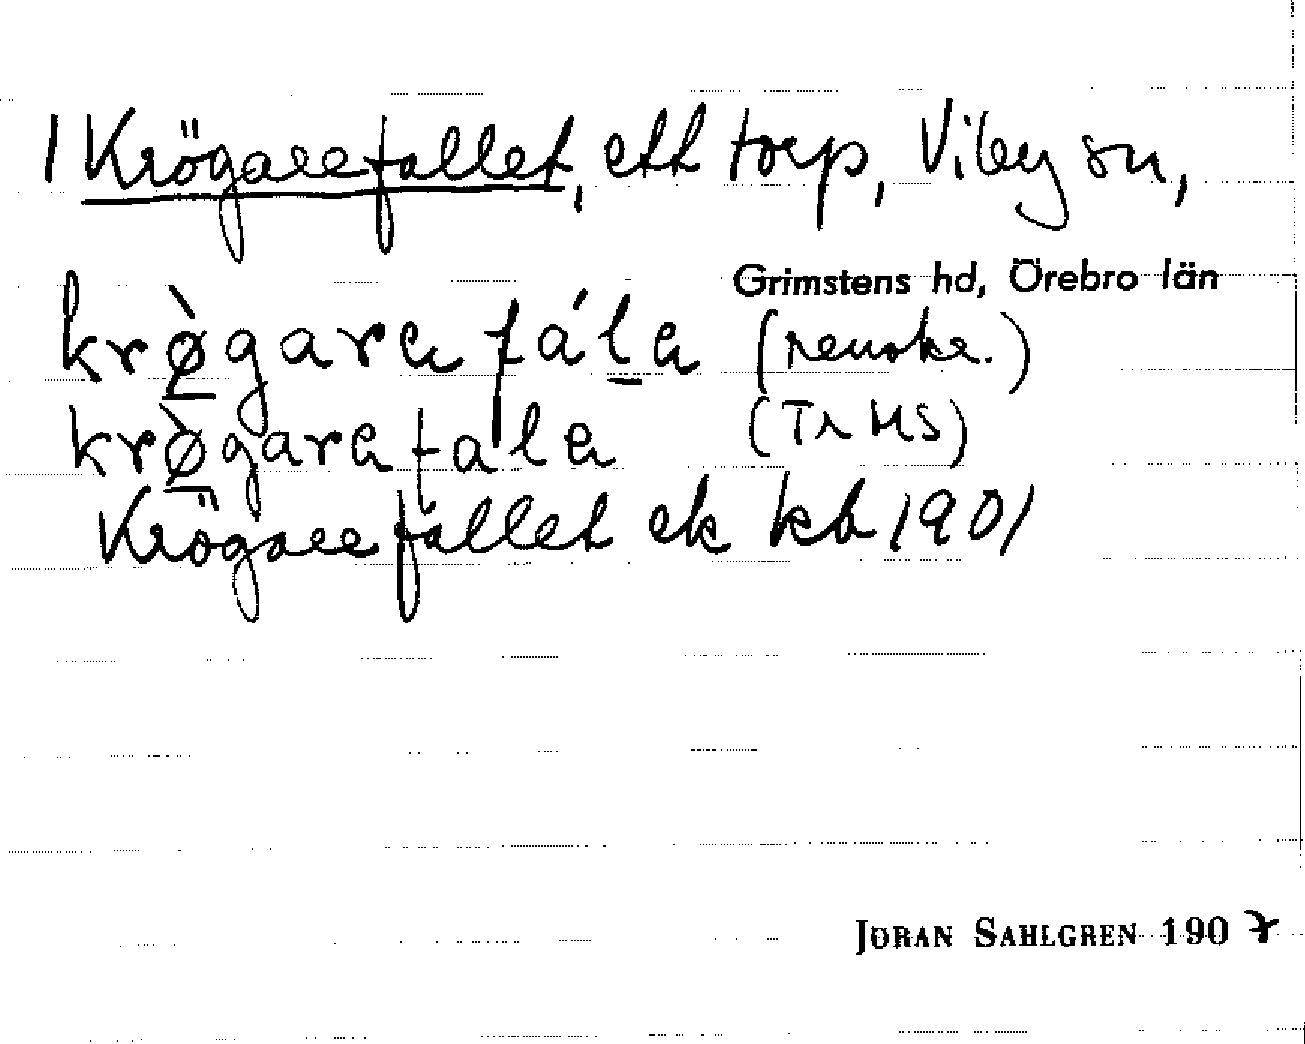 1 Krögarefallet, ett torp, Viby sn,
Grimstens hd, Örebro län
krø̀garɐ fálɐ (renskr.)
krø̀garɐfalɐ (Tr MS)
Krögarefallet ek kb 1901
JÖRAN SAHLGREN 1907